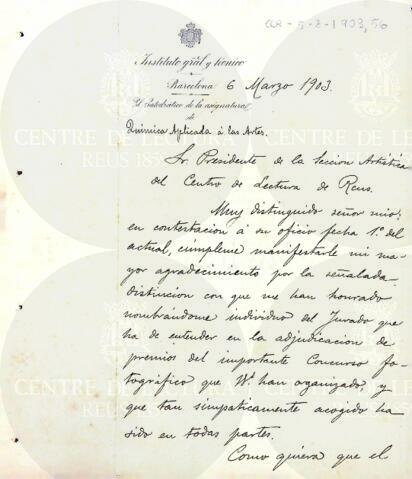 CLR-5-2-1903,56
Instituto gral. y técnico
Barcelona 6 Marzo 1903.
El Catedrático de la asignatura
de
Química Aplicada á las Artes.
Sr. Presidente de la Sección Artística
del Centro de Lectura de Reus.
Muy distinguido señor mio:
en contestación á su oficio fecha 1º del
actual, cúmpleme manifestarle mi ma-
yor agradecimiento por la señalada
distinción con que me han honrado
nombrándome individuo del Jurado que
ha de entender en la adjudicación de
premios del importante Concurso fo-
tográfico que Vs. han organizado y
que tan simpáticamente acogido ha
sido en todas partes.
Como quiera que el
CENTRE DE LECTURA
REUS 1859
CENTRE DE LECTURA